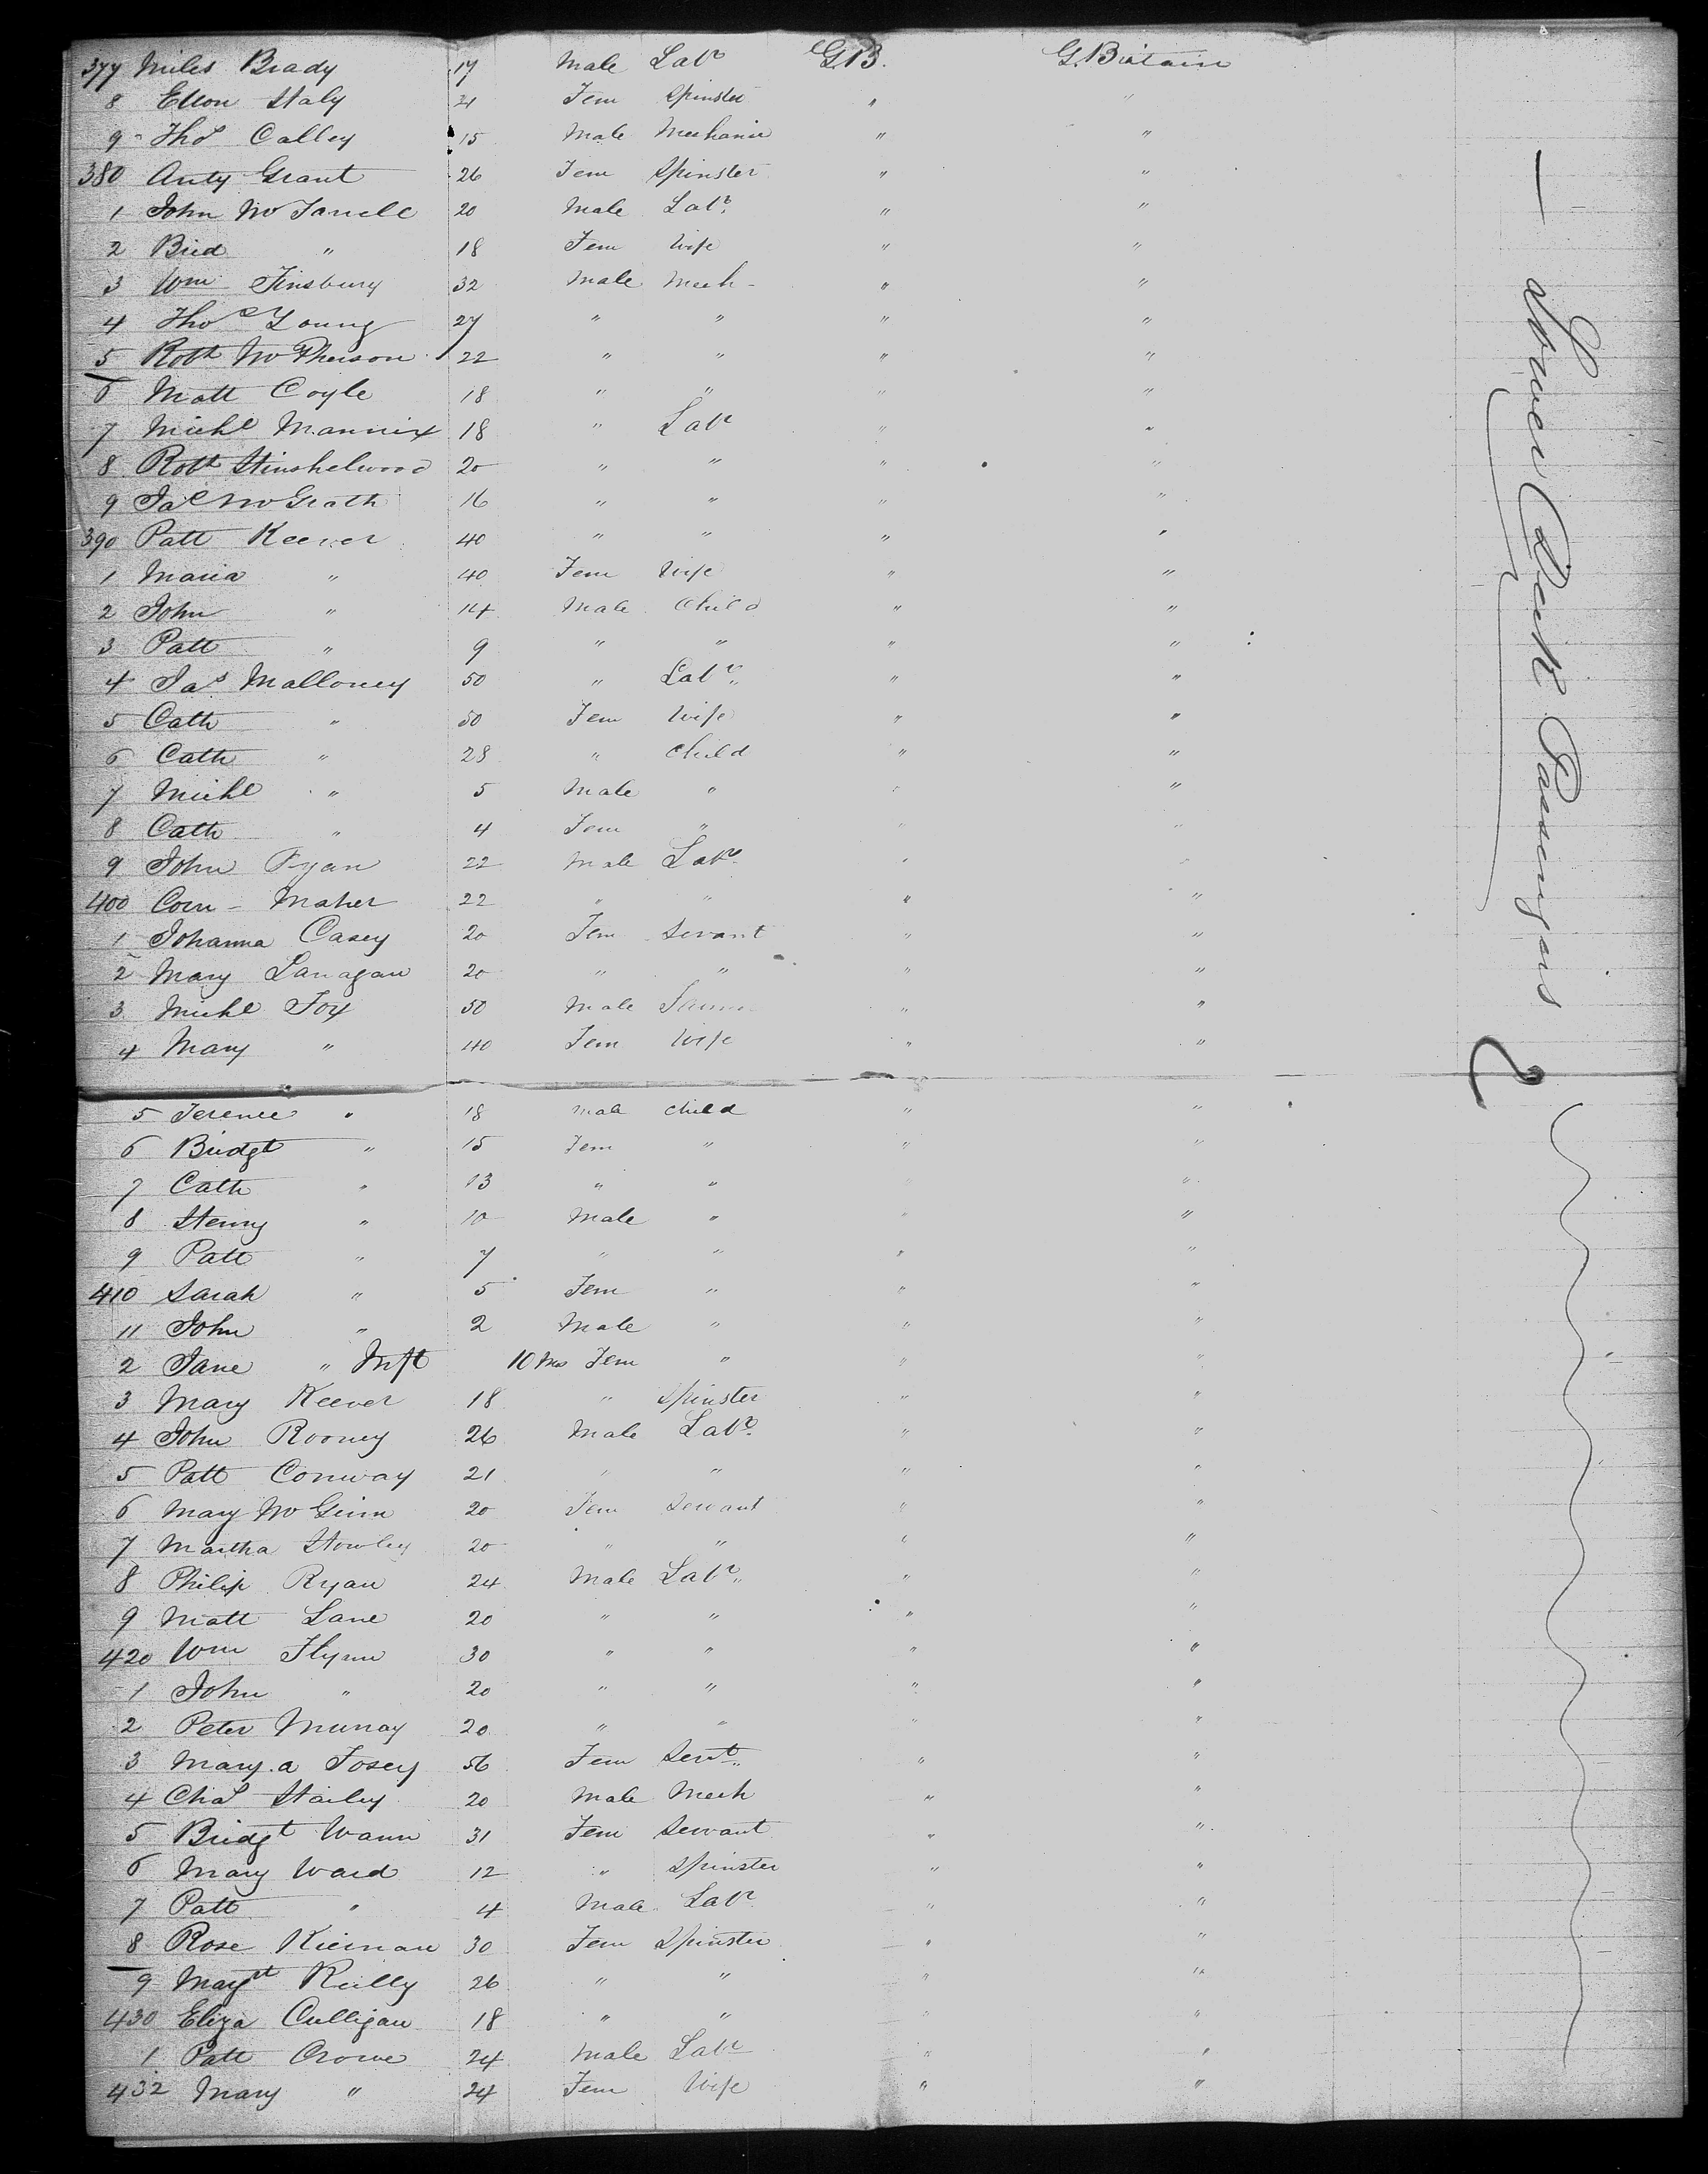 377 Miles Brady 17 Male Labr G.B. G. Britain
8 Ellen Haly 21 Fem Spinster " "
9 Thos Calley 15 Male Mechanic " "
380 Anty Grant 26 Fem Spinster " "
1 John Mc 20 Male Labr " "
2 Brid " 18 Fem Wife " "
3 Wm Finsbury 32 Male Mech " "
4 Thos Young 27 " " " "
5 Robt McPherson 22 " " " "
6 Matt Coyle 18 " " " "
7 Michl Mannix 18 " Labr " "
8 Robt Hinshelwood 20 " " " "
9 Jas McGrath 16 " " " "
390 Patt Keever 40 " " " "
1 Maria " 40 Fem Wife " "
2 John " 14 Male Child " "
3 Patt " 9 " " " "
4 Jas Malloney 50 " Labr " "
5 Cath " 50 Fem Wife " "
6 Cath " 28 " Child " "
7 Michl " 5 Male " " "
8 Cath " 4 Fem " " "
9 John Ryan 22 Male Labr " "
400 Corn - Maher 22 " " " "
1 Johanna Casey 20 Fem Servant " "
2 Mary Lanagan 20 " " " "
3 Michl Fox 50 Male " "
4 Mary " 40 Fem Wife " "
5 Terence " 18 Male Child " "
6 Bridgt " 15 Fem " " "
7 Cath " 13 " " " "
8 Henny " 10 Male " " "
9 Patt " 7 " " " "
410 Sarah " 5 Fem " " "
11 John " 2 Male " " "
2 Jane " Inft 10 Mos Fem " " "
3 Mary Keever 18 " Spinster " "
4 John Rooney 26 Male Labr " "
5 Patt Conway 21 " " " "
6 Mary McGinn 20 Fem Servant " "
7 Martha Howley 20 " " " "
8 Philip Ryan 24 Male Labr " "
9 Matt Lane 20 " " " "
420 Wm Flynn 30 " " " "
1 John " 20 " " " "
2 Peter Murray 20 " " " "
3 Mary a Fosey 56 Fem Servt " "
4 Chas Hailey 20 Male Mech " "
5 Bridgt Wann 31 Fem Servant " "
6 Mary Ward 12 " Spinster " "
7 Patt " 4 Male Labr " "
8 Rose Kiernan 30 Fem Spinster " "
9 Magt Reilly 26 " " " "
430 Eliza Culligan 18 " " " "
1 Patt Crowe 24 Male Labr " "
432 Mary " 24 Fem Wife " "
— Lower Deck Passengers 2